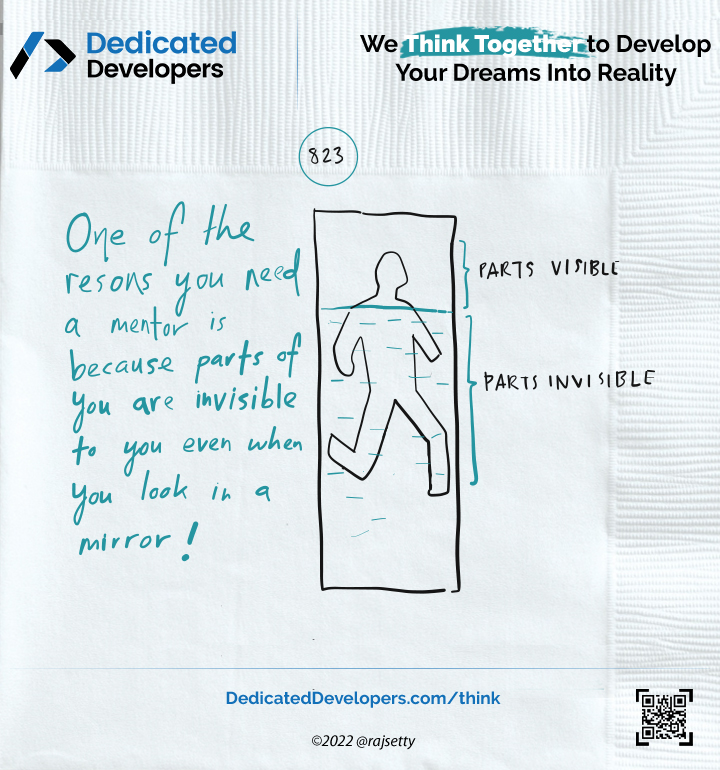 Dedicated
Developers
We Think Together to Develop
Your Dreams Into Reality
823
One of the
resons you need
a mentor is
because parts of
you are invisible
to you even when
you look in a
mirror!
PARTS VISIBLE
PARTS INVISIBLE
DedicatedDevelopers.com/think
©2022 @rajsetty